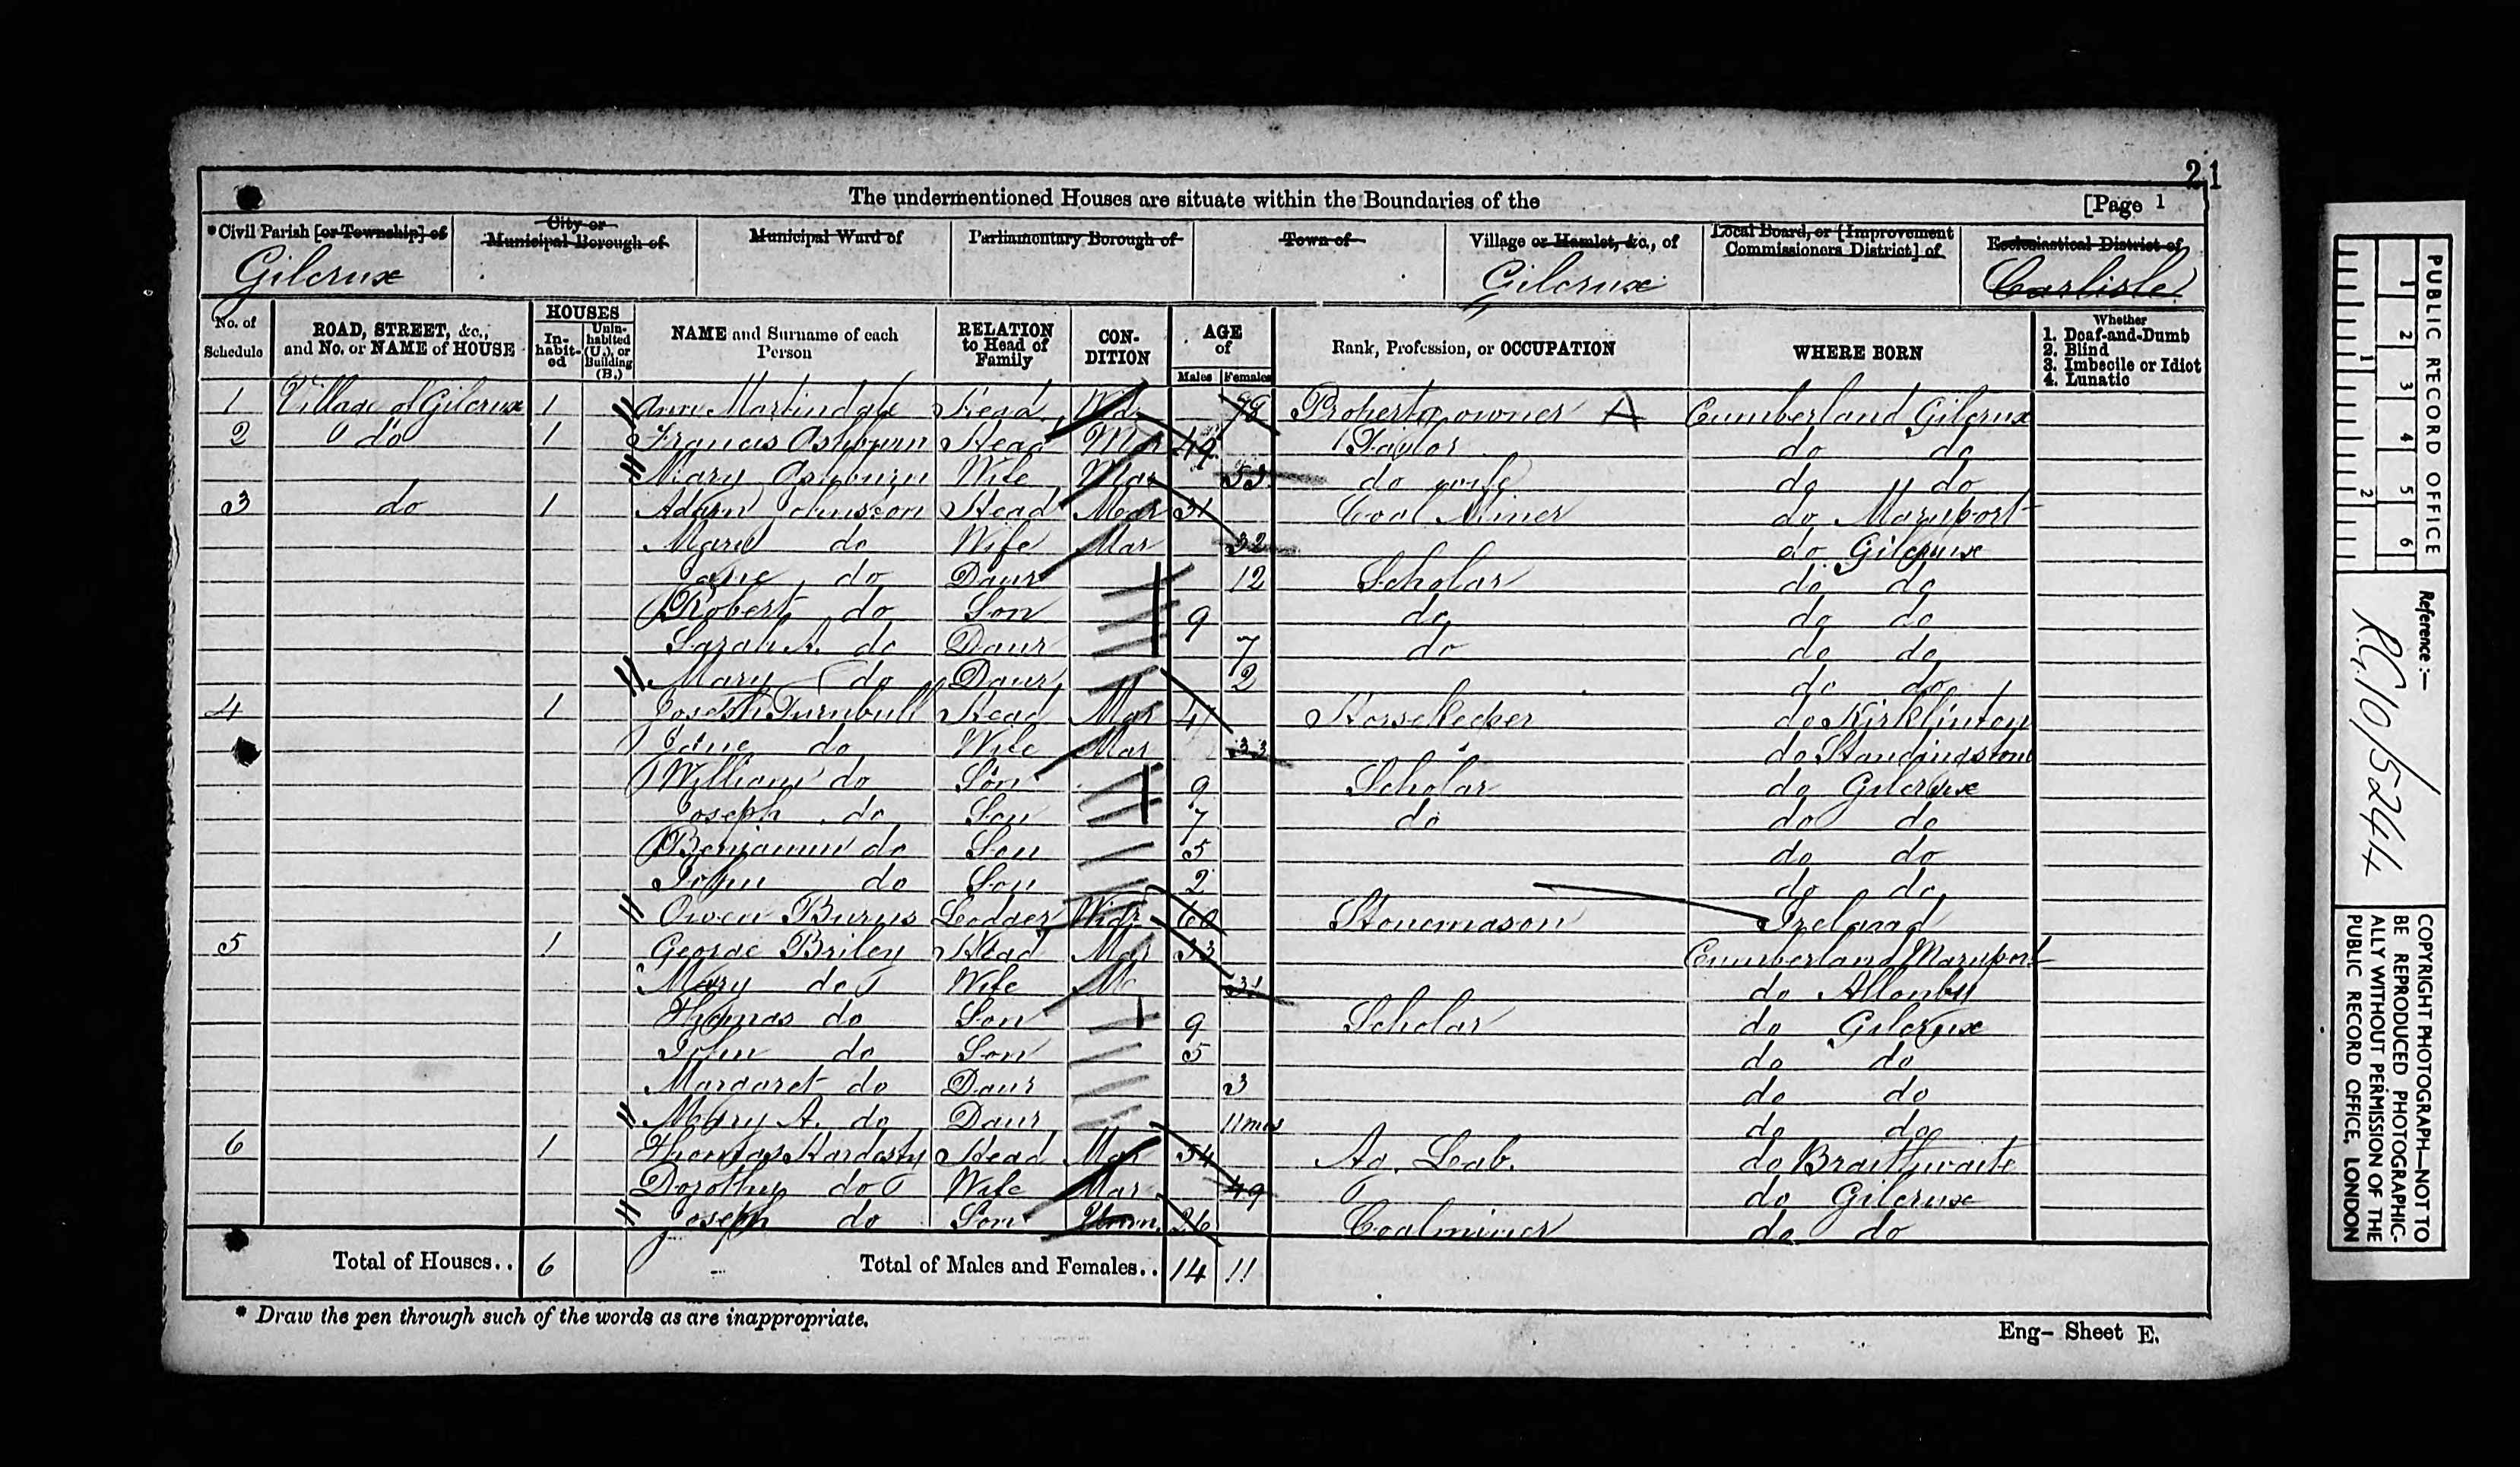 21
The undermentioned Houses are situate within the Boundaries of the
[Page 1
*Civil Parish [or Township] of
City or Municipal Borough of
Municipal Ward of
Parliamentary Borough of
Town of
Village or Hamlet, &c., of
Local Board, or [Improvement Commissioners District] of
Ecclesiastical District of
Gilcrux
Gilcrux
Carlisle
No. of Schedule
ROAD, STREET, &c., and No. or NAME of HOUSE
HOUSES
In-habit-ed
Unin-habited (U.), or Building (B.)
NAME and Surname of each Person
RELATION to Head of Family
CON-DITION
AGE of
Males
Females
Rank, Profession, or OCCUPATION
WHERE BORN
Whether
1. Deaf-and-Dumb
2. Blind
3. Imbecile or Idiot
4. Lunatic
1 Village of Gilcrux 1 Ann Martindale Head Property owner A Cumberland Gilcrux
2 do 1 Francis Ashburn Head Mar 49 Taylor do do
Mary Ashburn Wife Mar 53 do wife do do
3 do 1 Adam Johnston Head Mar 31 Coal Miner do Maryport
Mary do Wife Mar 32 do Gilcrux
Jane do Daur 12 Scholar do do
Robert do Son 9 do do do
Sarah A. do Daur 7 do do do
Mary do Daur 2 do do
4 1 Joseph Turnbull Head Mar 41 do Kirklinton
Jane do Wife Mar 33 do Standingstone
William do Son 9 Scholar do Gilcrux
Joseph do Son 7 do do do
Benjamin do Son 5 do do
John do Son 2 do do
Owen Burns Lodger Widr 60 Stonemason Ireland
5 1 George Briley Head Mar 33 Cumberland Maryport
Mary do Wife 31 do Allonby
Thomas do Son 9 Scholar do Gilcrux
John do Son 5 do do
Margaret do Daur 3 do do
Mary A. do Daur 11mos do do
6 1 Thomas Hardasty Head Mar 54 Ag. Lab. do Braithwaite
Dorothy do Wife Mar 49 do Gilcrux
Joseph do Son Unm. 26 Coalminer do do
Total of Houses.. 6
Total of Males and Females.. 14 11
* Draw the pen through such of the words as are inappropriate.
Eng- Sheet E.
PUBLIC RECORD OFFICE
1 2 3 4 5 6
1 2
Reference:—
R.G. 10/5244
COPYRIGHT PHOTOGRAPH—NOT TO
BE REPRODUCED PHOTOGRAPHIC-
ALLY WITHOUT PERMISSION OF THE
PUBLIC RECORD OFFICE, LONDON